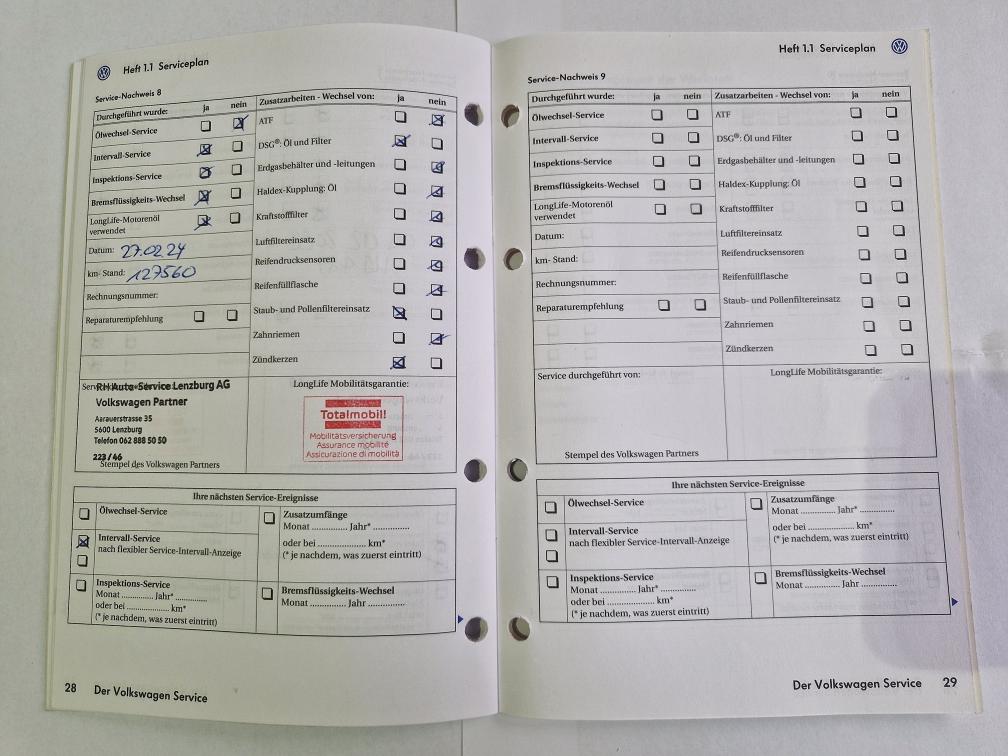 Heft 1.1 Serviceplan
Service-Nachweis 8
Durchgeführt wurde: ja nein
Ölwechsel-Service
Intervall-Service
Inspektions-Service
Bremsflüssigkeits-Wechsel
LongLife-Motorenöl
verwendet
Datum: 27.02.24
km- Stand: 127560
Rechnungsnummer:
Reparaturempfehlung
Zusatzarbeiten - Wechsel von: ja nein
ATF
DSG®: Öl und Filter
Erdgasbehälter und -leitungen
Haldex-Kupplung: Öl
Kraftstofffilter
Luftfiltereinsatz
Reifendrucksensoren
Reifenfüllflasche
Staub- und Pollenfiltereinsatz
Zahnriemen
Zündkerzen
RH Auto-Service Lenzburg AG
Volkswagen Partner
Aarauerstrasse 35
5600 Lenzburg
Telefon 062 888 50 50
223/46
Stempel des Volkswagen Partners
LongLife Mobilitätsgarantie:
Totalmobil!
Mobilitätsversicherung
Assurance mobilité
Assicurazione di mobilità
Ihre nächsten Service-Ereignisse
Ölwechsel-Service
Intervall-Service
nach flexibler Service-Intervall-Anzeige
Inspektions-Service
Monat .............. Jahr* ..............
oder bei .................. km*
(* je nachdem, was zuerst eintritt)
Zusatzumfänge
Monat .............. Jahr* ..............
oder bei .................. km*
(* je nachdem, was zuerst eintritt)
Bremsflüssigkeits-Wechsel
Monat .............. Jahr ..............
28 Der Volkswagen Service
Heft 1.1 Serviceplan
Service-Nachweis 9
Durchgeführt wurde: ja nein
Ölwechsel-Service
Intervall-Service
Inspektions-Service
Bremsflüssigkeits-Wechsel
LongLife-Motorenöl
verwendet
Datum:
km- Stand:
Rechnungsnummer:
Reparaturempfehlung
Zusatzarbeiten - Wechsel von: ja nein
ATF
DSG®: Öl und Filter
Erdgasbehälter und -leitungen
Haldex-Kupplung: Öl
Kraftstofffilter
Luftfiltereinsatz
Reifendrucksensoren
Reifenfüllflasche
Staub- und Pollenfiltereinsatz
Zahnriemen
Zündkerzen
Service durchgeführt von:
Stempel des Volkswagen Partners
LongLife Mobilitätsgarantie:
Ihre nächsten Service-Ereignisse
Ölwechsel-Service
Intervall-Service
nach flexibler Service-Intervall-Anzeige
Inspektions-Service
Monat .............. Jahr* ..............
oder bei .................. km*
(* je nachdem, was zuerst eintritt)
Zusatzumfänge
Monat .............. Jahr* ..............
oder bei .................. km*
(* je nachdem, was zuerst eintritt)
Bremsflüssigkeits-Wechsel
Monat .............. Jahr ..............
Der Volkswagen Service 29